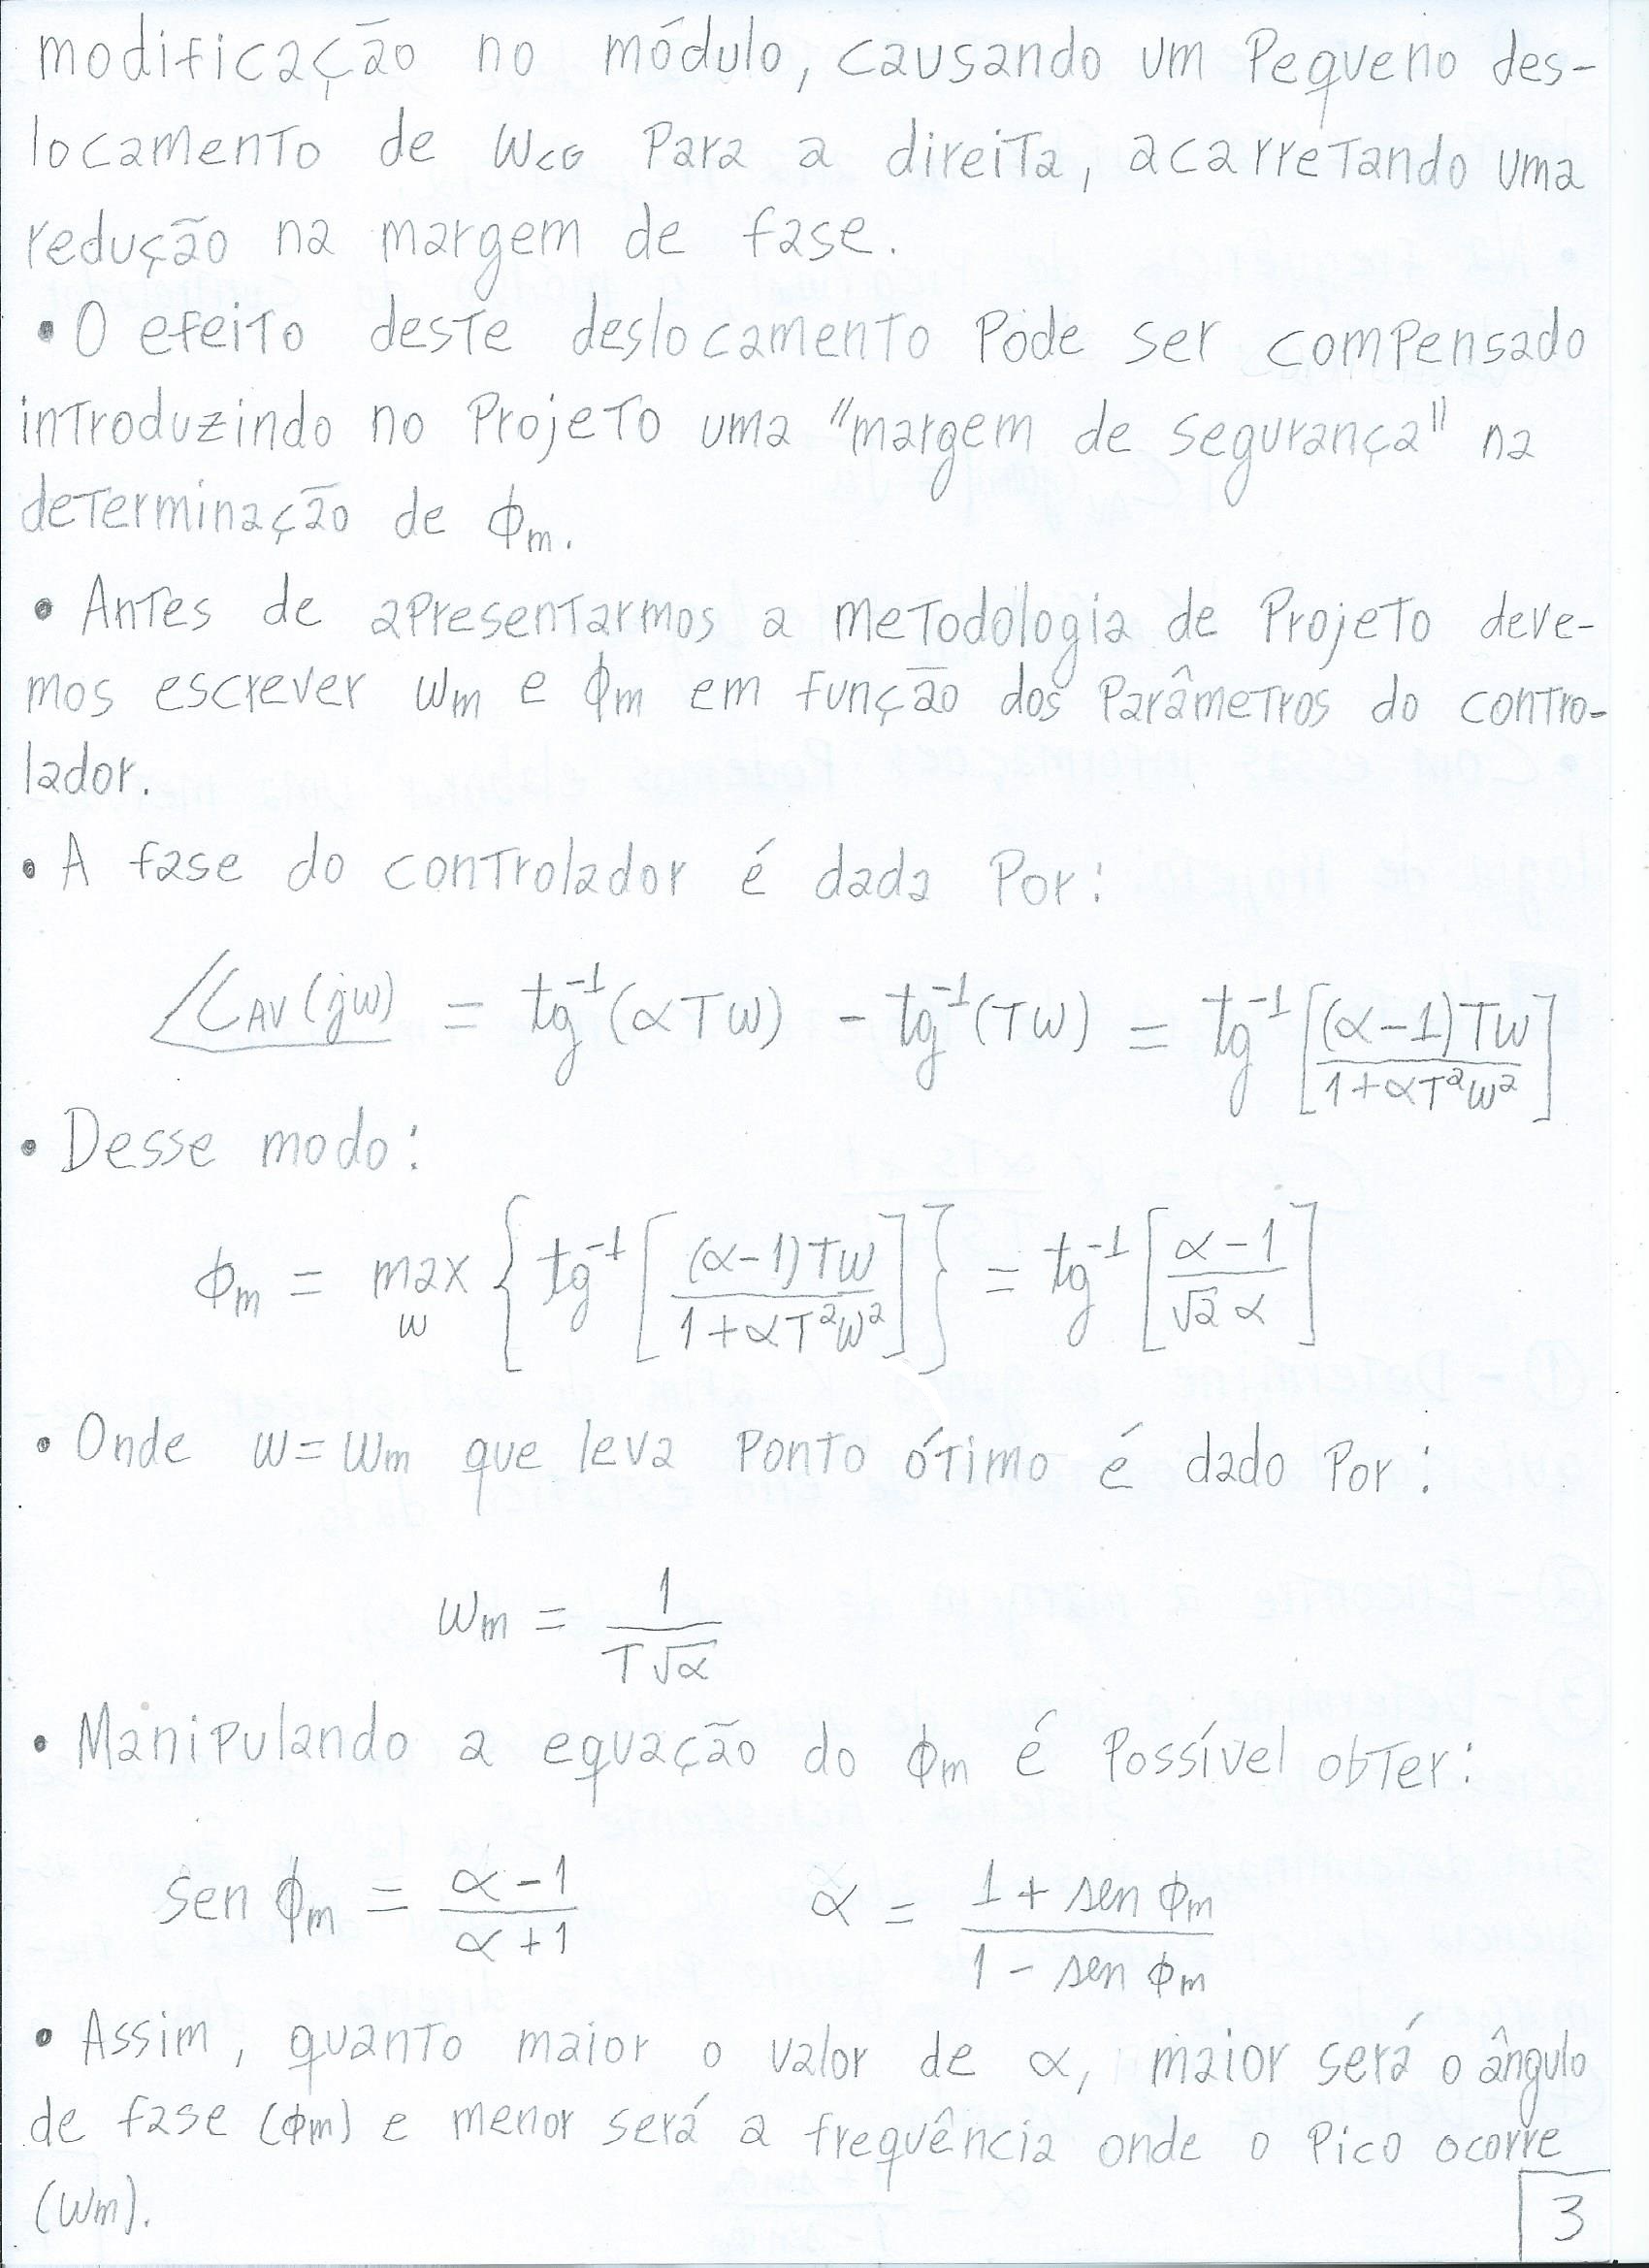 modificação no módulo, causando um pequeno des-
locamento de ωcg para a direita, acarretando uma
redução na margem de fase.
• O efeito deste deslocamento pode ser compensado
introduzindo no projeto uma "margem de segurança" na
determinação de ϕm.
• Antes de apresentarmos a metodologia de projeto deve-
mos escrever ωm e ϕm em função dos parâmetros do contro-
lador.
• A fase do controlador é dada por:
∠CAV(jω) = tg⁻¹(αTω) - tg⁻¹(Tω) = tg⁻¹[(α-1)Tω / 1+αT²ω²]
• Desse modo:
ϕm = max ω {tg⁻¹[(α-1)Tω / 1+αT²ω²]} = tg⁻¹[α-1 / √2 α]
• Onde ω=ωm que leva ponto ótimo é dado por:
ωm = 1 / T√α
• Manipulando a equação do ϕm é possível obter:
sen ϕm = α-1 / α+1    α = 1 + sen ϕm / 1 - sen ϕm
• Assim, quanto maior o valor de α, maior será o ângulo
de fase (ϕm) e menor será a frequência onde o pico ocorre
(ωm).
3